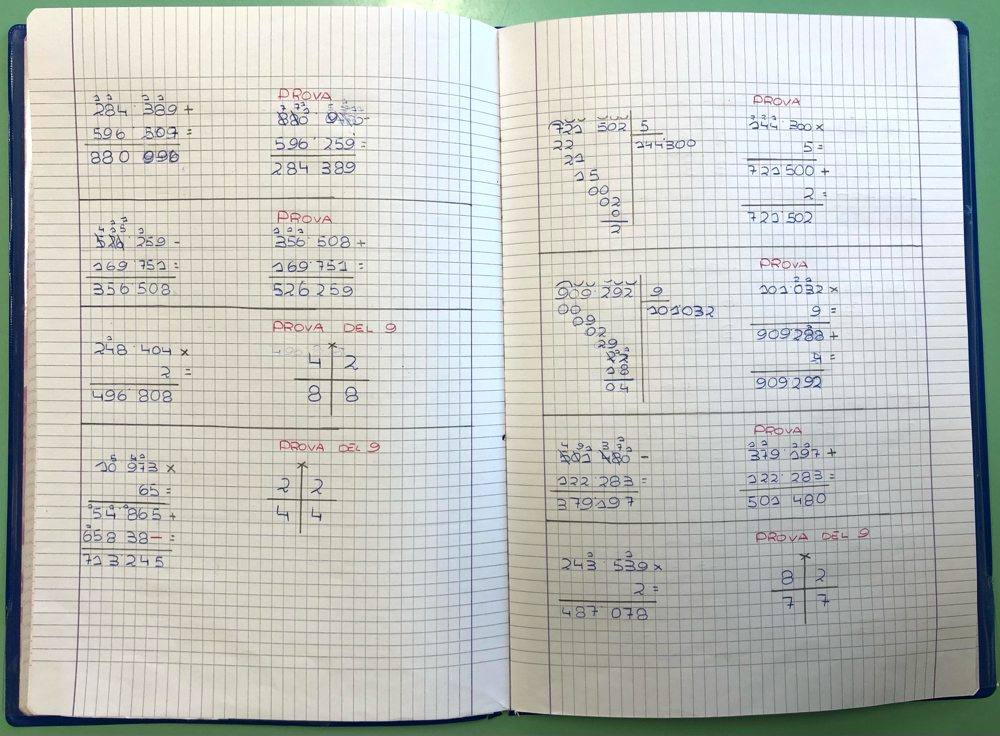 284·389+
596·507=
880 996
PROVA
880
596·259=
284 389
526 259-
169·751=
356 508
PROVA
356·508+
169·751=
526259
248·404×
2=
496·808
PROVA DEL 9
×
4 2
8 8
10 973×
65=
54·865+
65838-=
713245
PROVA DEL 9
×
2 2
4 4
721 502 5
22 144·300
21
15
00
02
0
2
PROVA
144·300×
5=
721500+
2=
721·502
909·292 9
00 101·032
09
02
29
22
18
04
PROVA
101·032×
9=
909288+
4=
909292
501·480-
122·283=
379197
PROVA
379·197+
122·283=
501 480
243·539×
2=
487·078
PROVA DEL 9
×
8 2
7 7